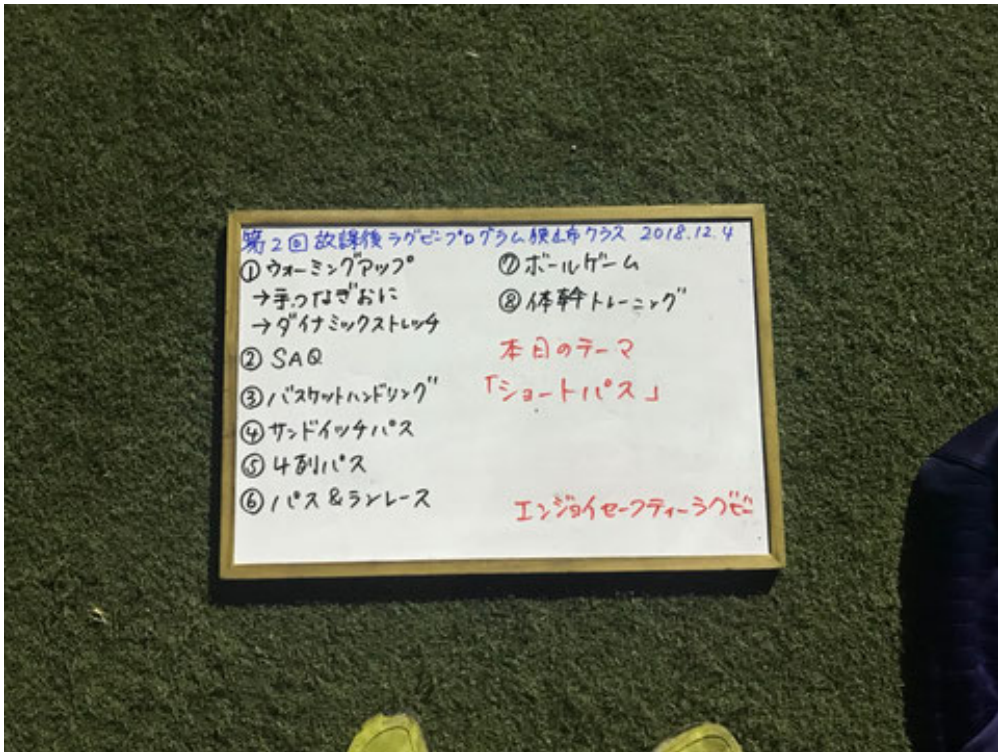 第2回 放課後ラグビープログラム 狭山市クラス 2018.12.4
① ウォーミングアップ
→手つなぎおに
→ダイナミックストレッチ
② SAQ
③ バスケットハンドリング
④ サンドイッチパス
⑤ 4列パス
⑥ パス&ランレース
⑦ ボールゲーム
⑧ 体幹トレーニング
本日のテーマ
「ショートパス」
エンジョイセーフティーラグビー